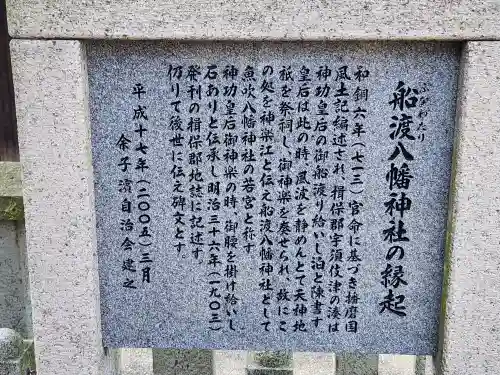 船渡八幡神社の縁起
ふなわたり
和銅六年(七一三)官命に基づき播磨国
風土記編述され、揖保郡宇須伎津の湊は
神功皇后の御船渡り給いし泊と陳書す
皇后は此の時、風波を静めんとて天神地
祇を祭祠し、御神楽を奏せられ、故にこ
の処を神楽江と伝え船渡八幡神社として
魚吹八幡神社の若宮と称す。
神功皇后御神楽の時、御腰を掛け給いし
石ありと伝承し明治三十六年(一九〇三)
発刊の揖保郡地誌に記述す。
仍りて後世に伝え碑文とす。
平成十七年(二〇〇五)三月
余子濱自治会建之